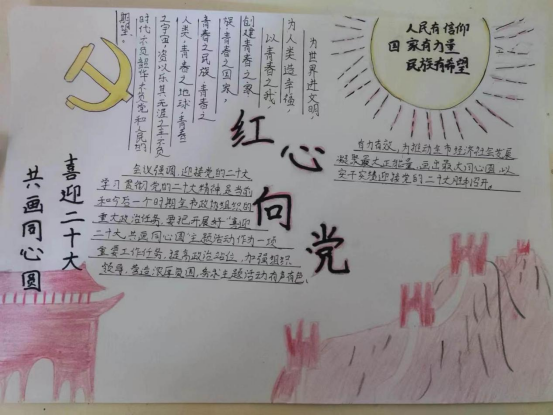 为世界进文明
为人类造幸福，
以青春之我，
创建青春之家
青春之国家，
青春之民族，青春之
人类，青春之地球，青春
之宇宙，资以乐其无涯之生。不负
时代，不负韶华，不负党和人民的
期望。
人民有信仰
国家有力量
民族有希望
红心向党
喜迎二十大
共画同心圆
会议强调，迎接党的二十大
学习贯彻党的二十大精神是当前
和今后一个时期全市政协组织的
重大政治任务，要把开展好“喜迎
二十大，共画同心圆”主题活动作为一项
重要工作任务，提高政治站位，加强组织
领导，营造浓厚氛围，务求主题活动有声有色。
有力有效，为推动全市经济社会发展
凝聚最大正能量，画出最大同心圆，以
实干实绩迎接党的二十大胜利召开。